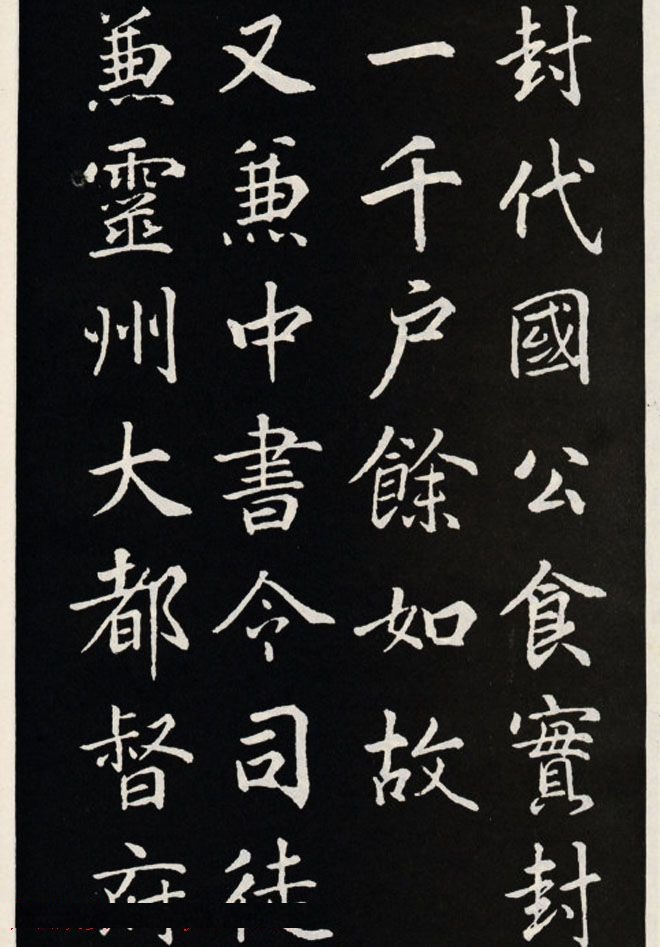 封代國公食實封
一千户餘如故
又兼中書令司徒
兼靈州大都督府